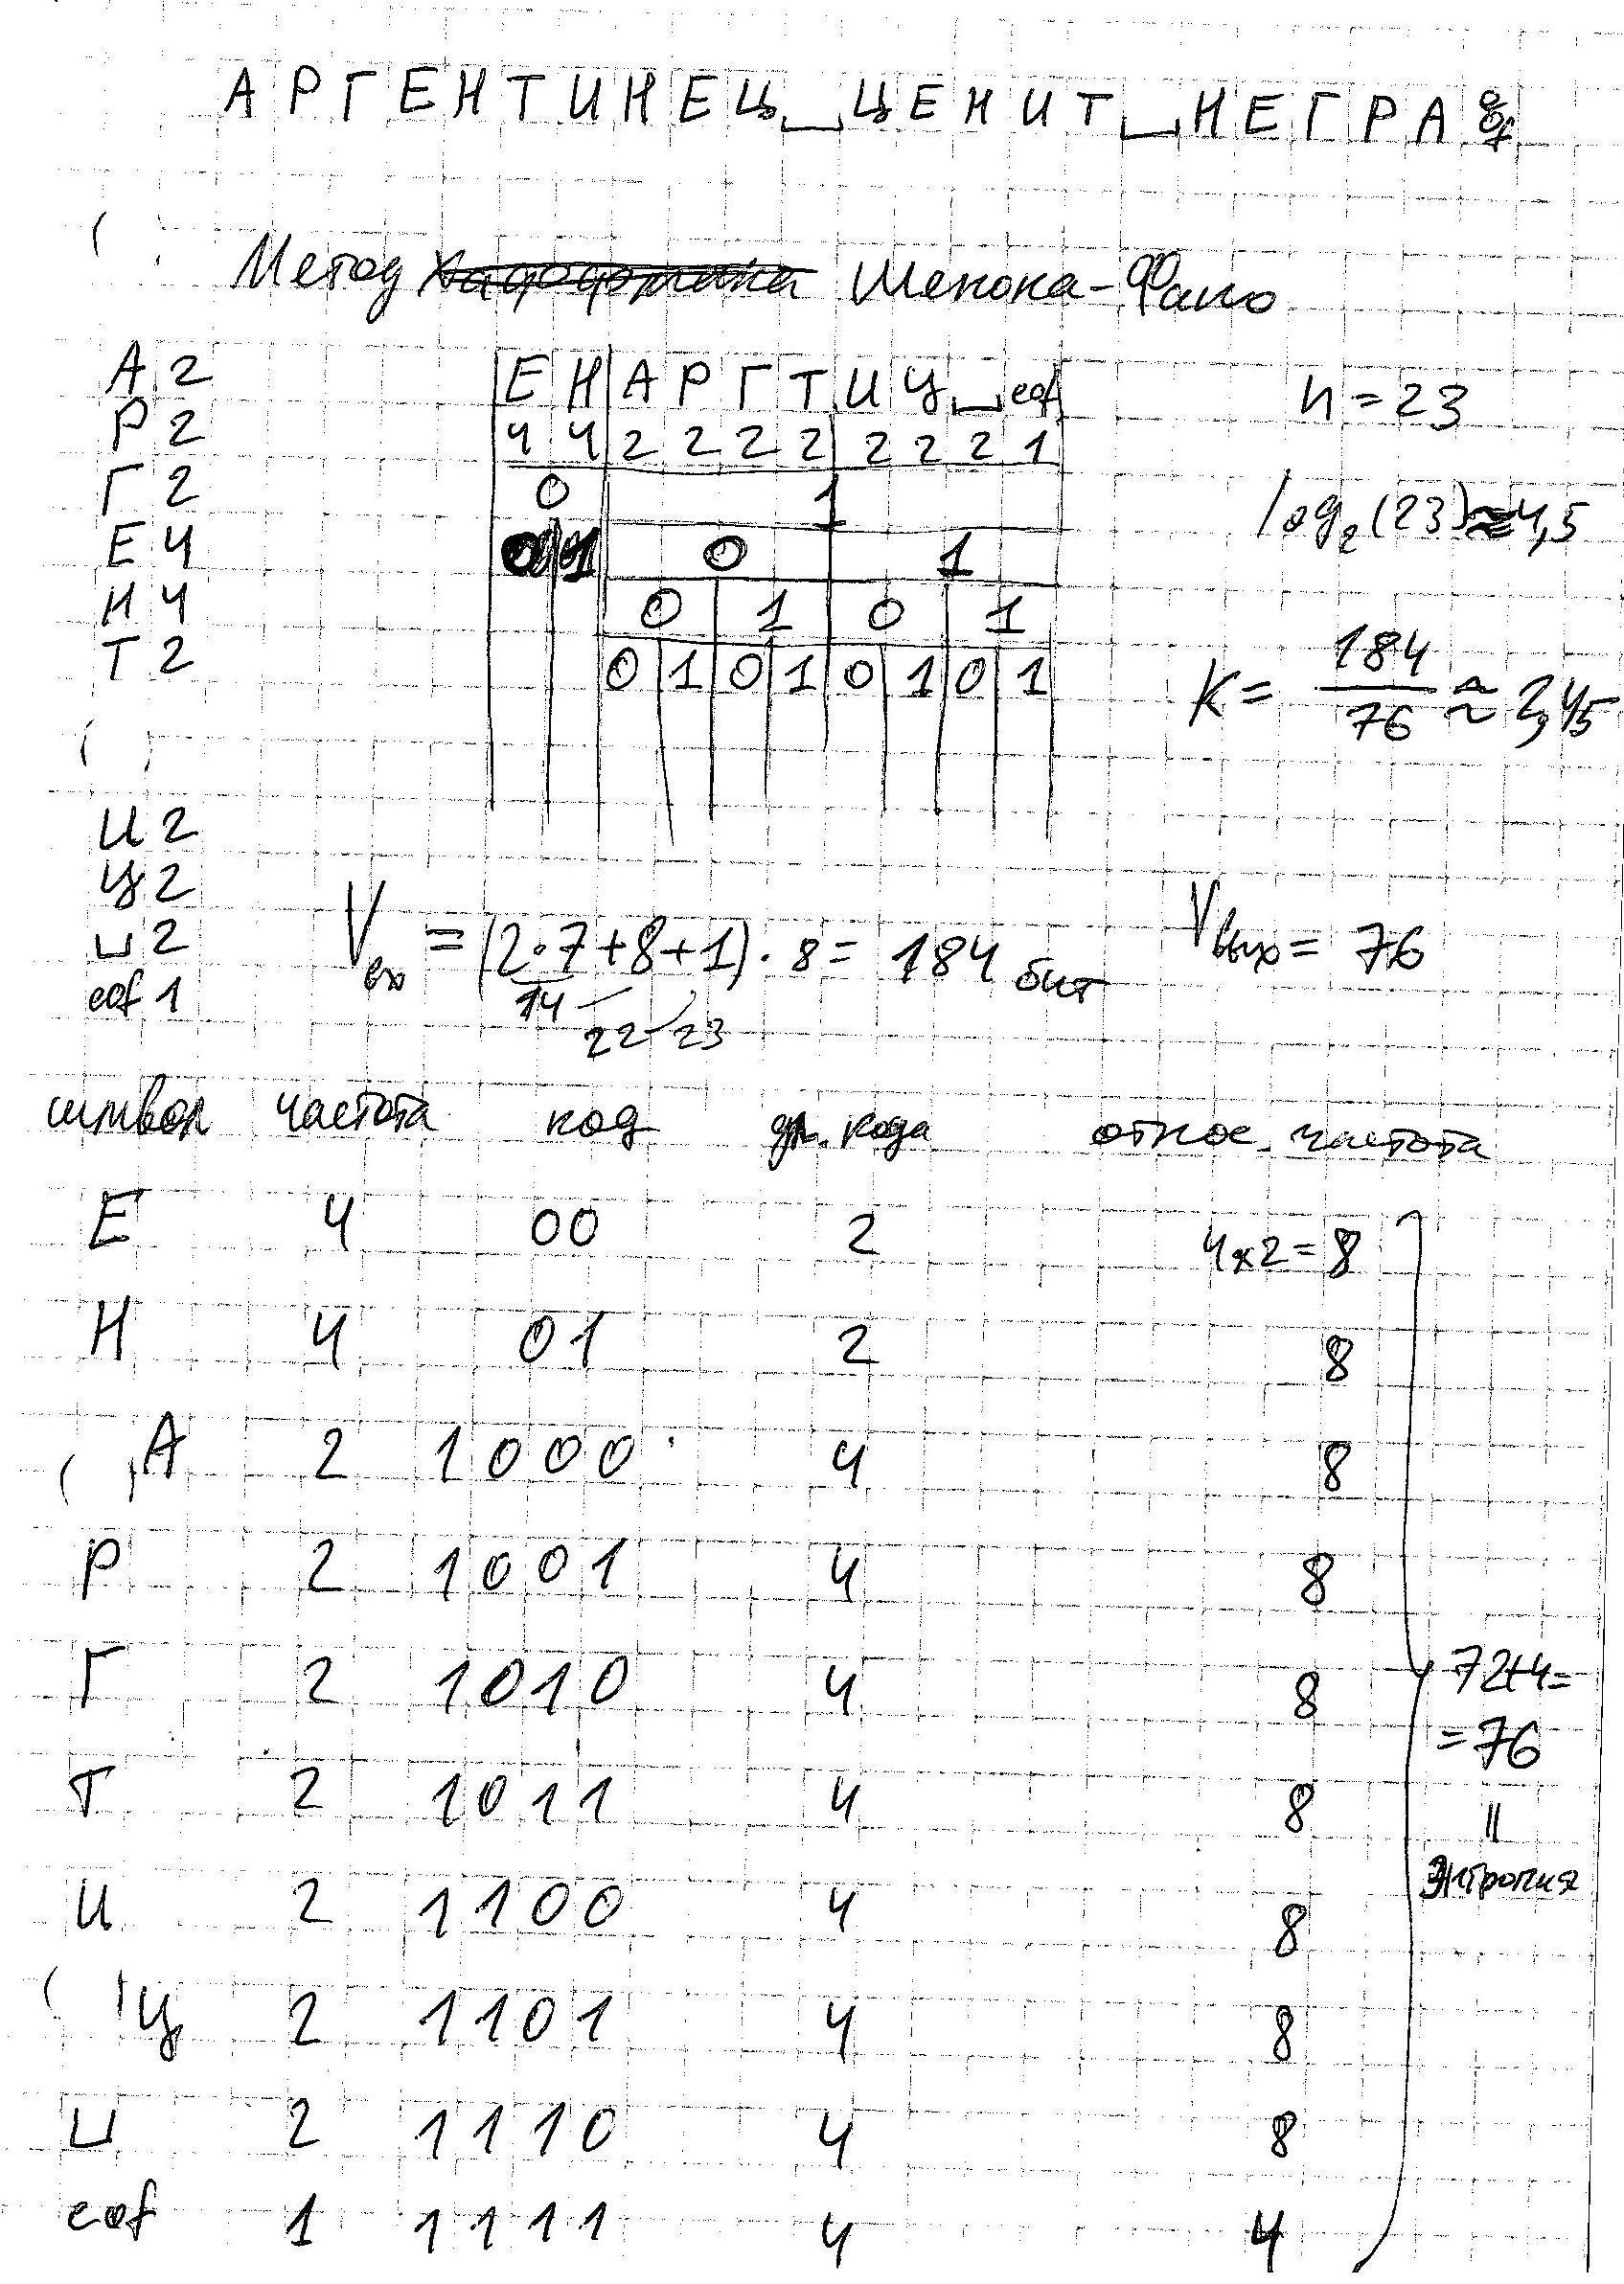 АРГЕНТИНЕЦ␣ЦЕНИТ␣НЕГРА
Метод Шенона-Фано
А 2
Р 2
Г 2
Е 4
Н 4
Т 2
И 2
Ц 2
␣ 2
eof 1
Е Н А Р Г Т И Ц ␣ eof
4 4 2 2 2 2 2 2 2 1
0 1
0 1 0 1
0 1 0 1
0 1 0 1 0 1 0 1
n = 23
log₂(23) ≈ 4,5
K = 184/76 ≈ 2,45
Vвх = (2·7+8+1)·8 = 184 бит
14 22 23
Vвых = 76
символ частота код дл. кода относ. частота
Е 4 00 2 4x2=8
Н 4 01 2 8
А 2 1000 4 8
Р 2 1001 4 8
Г 2 1010 4 8
Т 2 1011 4 8
И 2 1100 4 8
Ц 2 1101 4 8
␣ 2 1110 4 8
eof 1 1111 4 4
72+4=
=76
||
Энтропия